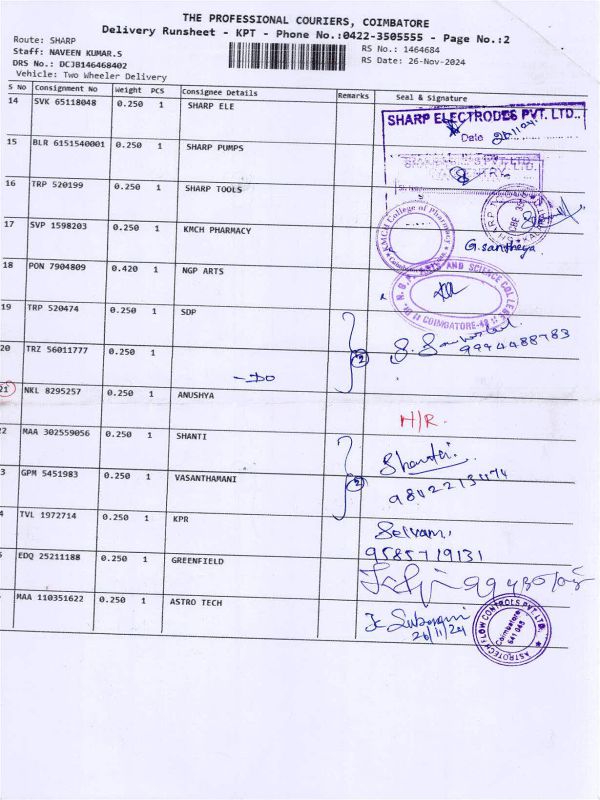 THE PROFESSIONAL COURIERS, COIMBATORE
Delivery Runsheet - KPT - Phone No.:0422-3505555 - Page No.:2
Route: SHARP
RS No.: 1464684
Staff: NAVEEN KUMAR.S
RS Date: 26-Nov-2024
DRS No.: DCJB146468402
Vehicle: Two Wheeler Delivery
S No Consignment No Weight PCS Consignee Details Remarks Seal & Signature
14 SVK 65118048 0.250 1 SHARP ELE
SHARP ELECTRODES PVT. LTD..
Date
15 BLR 6151540001 0.250 1 SHARP PUMPS
16 TRP 520199 0.250 1 SHARP TOOLS
17 SVP 1598203 0.250 1 KMCH PHARMACY
KMCH College of Pharmacy
G. santheya
18 PON 7904809 0.420 1 NGP ARTS
ARTS AND SCIENCE COLLEGE
COIMBATORE-48
19 TRP 520474 SDP
2
9994488783
20 TRZ 56011777 0.250 1
-Do
21 NKL 8295257 0.250 1 ANUSHYA
H/R.
2 MAA 302559056 0.250 1 SHANTI
Shanthi
2
3 GPM 5451983 0.250 1 VASANTHAMANI
4 TVL 1972714 0.250 1 KPR
Selvam,
9585719131
EDQ 25211188 0.250 1 GREENFIELD
MAA 110351622 0.250 1 ASTRO TECH
26/11/24
ASTROTECH FLOW CONTROLS PVT. LTD.
Coimbatore
641 048